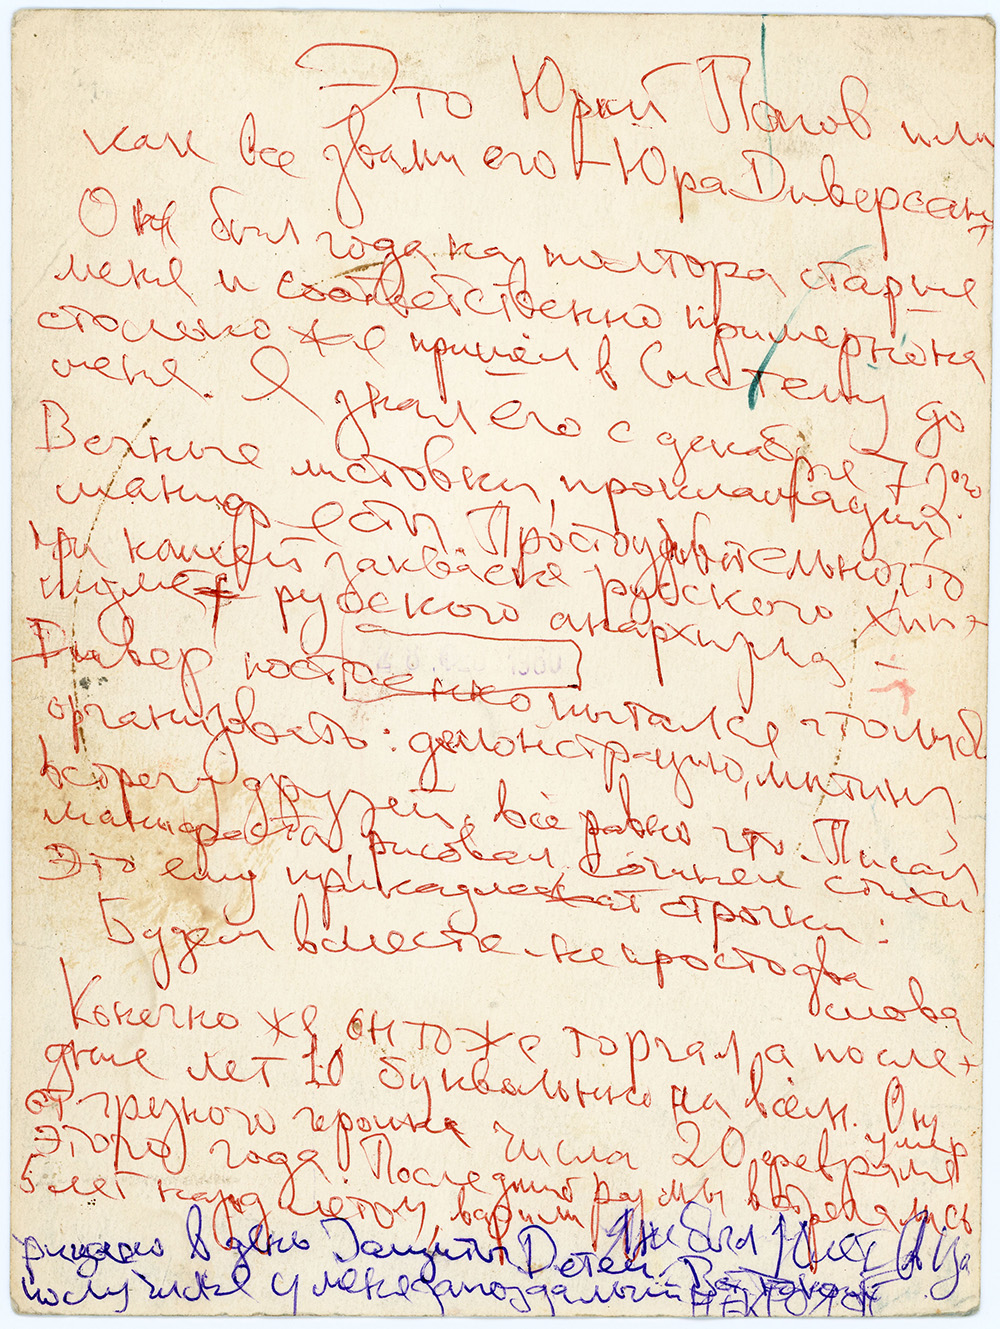 Это Юрий Попов или
как все звали его – Юра Диверсант
Он был года на полтора старше
меня и соответственно примерно на
столько же пришёл в Систему до
меня. Я знал его с декабря 7 ого
Вечные листовки, прокламации,
манифесты. Просто удивительно что
при какой закваске русского хип-
русского анархизма –
Дивер постоянно пытался что либо
организовать: демонстрацию, митинг,
встречу друзей, всё равно что. Писал
манифеста, рисовал, сочинял стихи
Это ему принадлежат строчки:
Будем вместе не просто два
слова
Конечно же он тоже торчал, а послед-
ние лет 10 буквально на всём. Он умер
от грязного героина числа 20 февраля
этого года. Последний раз мы встретились
5 лет назад летом, варили
в день Защиты Детей. Он был Йог
у меня запоздалый Вот такой
НЕКРОЛОГ